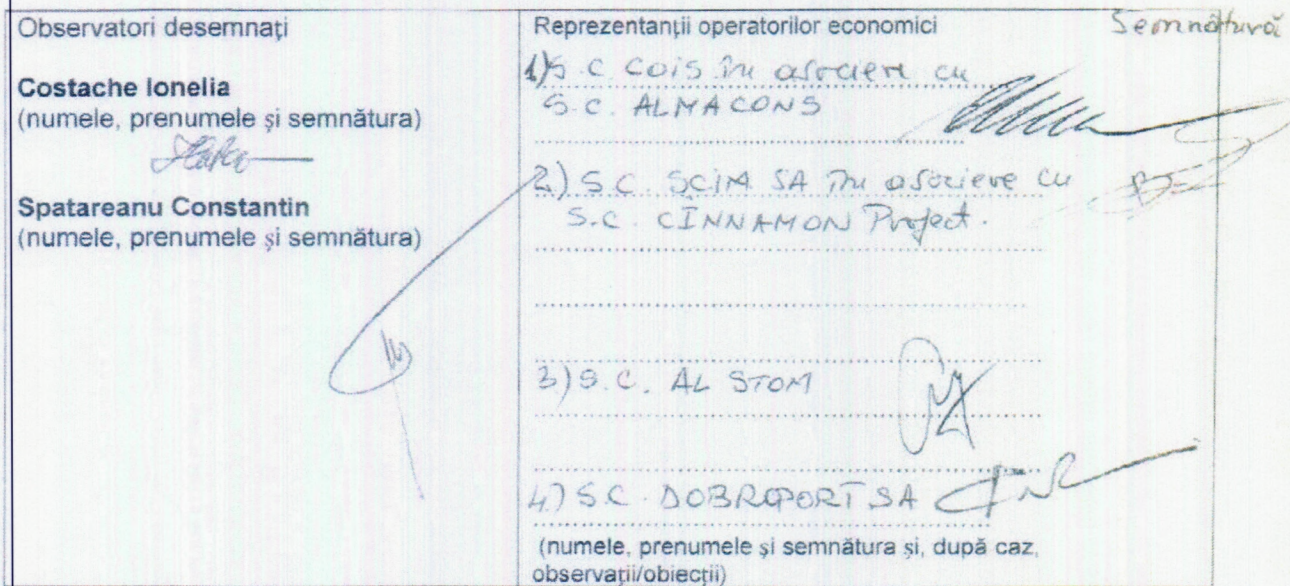 Observatori desemnați
Costache Ionelia
(numele, prenumele și semnătura)
Spatareanu Constantin
(numele, prenumele și semnătura)
Reprezentanții operatorilor economici
Semnătură
1) S.C. COIS în asociere cu
S.C. ALMACONS
2) S.C. SCIM SA în asociere cu
S.C. CINNAMON Project.
3) S.C. AL STOM
4) S.C. DOBROPORT SA
(numele, prenumele și semnătura și, după caz,
observații/obiecții)